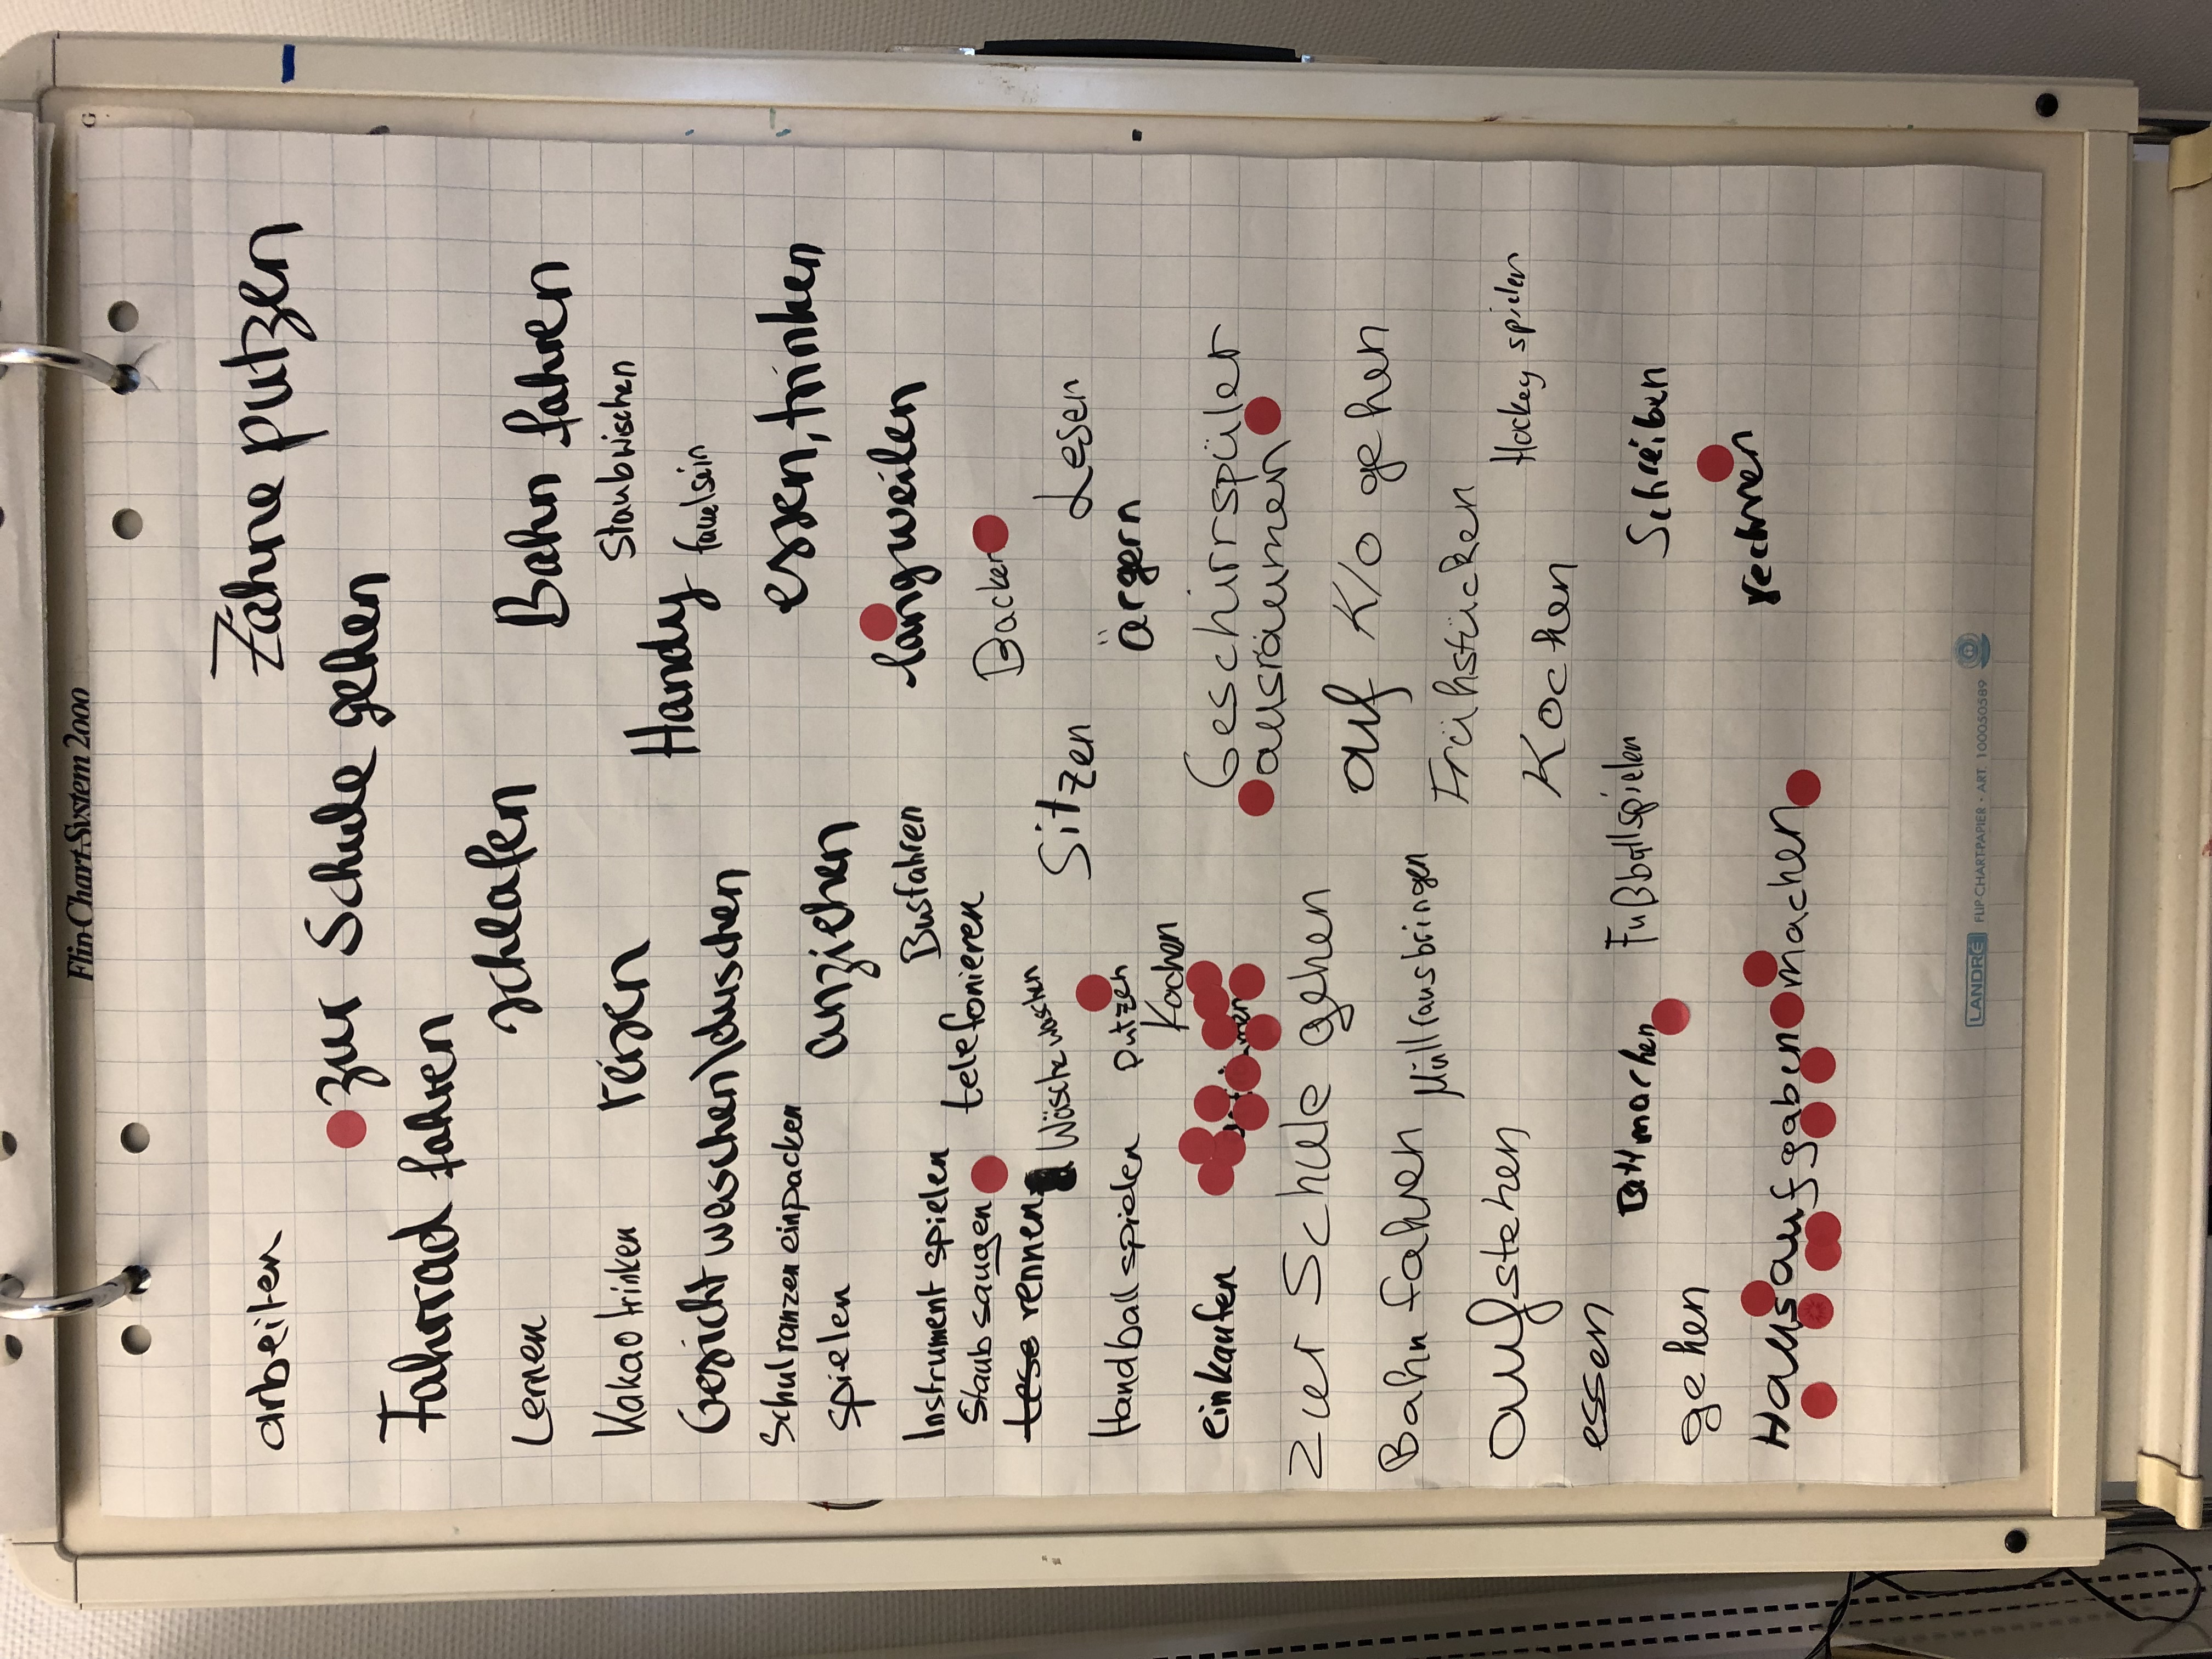 Flip-Chart-System 2000
Zähne putzen
arbeiten
zur Schule gehen
Fahrrad fahren
schlafen
Bahn fahren
Lernen
Staubwischen
Kakao trinken
reisen
Handy
faulsein
Gesicht waschen/duschen
Schulranzen einpacken
essen, trinken
spielen
anziehen
langweilen
Instrument spielen
Busfahren
Staubsaugen
telefonieren
Backen
rennen
Wäsche waschen
Sitzen
Lesen
Handball spielen
putzen
ärgern
Kochen
einkaufen
Geschirrspüler
ausräumen
zur Schule gehen
auf K/O gehen
Bahn fahren
Müll rausbringen
Frühstücken
Hockey spielen
aufstehen
Kochen
essen
Bett machen
Fußballspielen
Schreiben
gehen
rechnen
Hausaufgaben machen
LANDRÉ FLIP-CHART-PAPIER · ART. 100050589